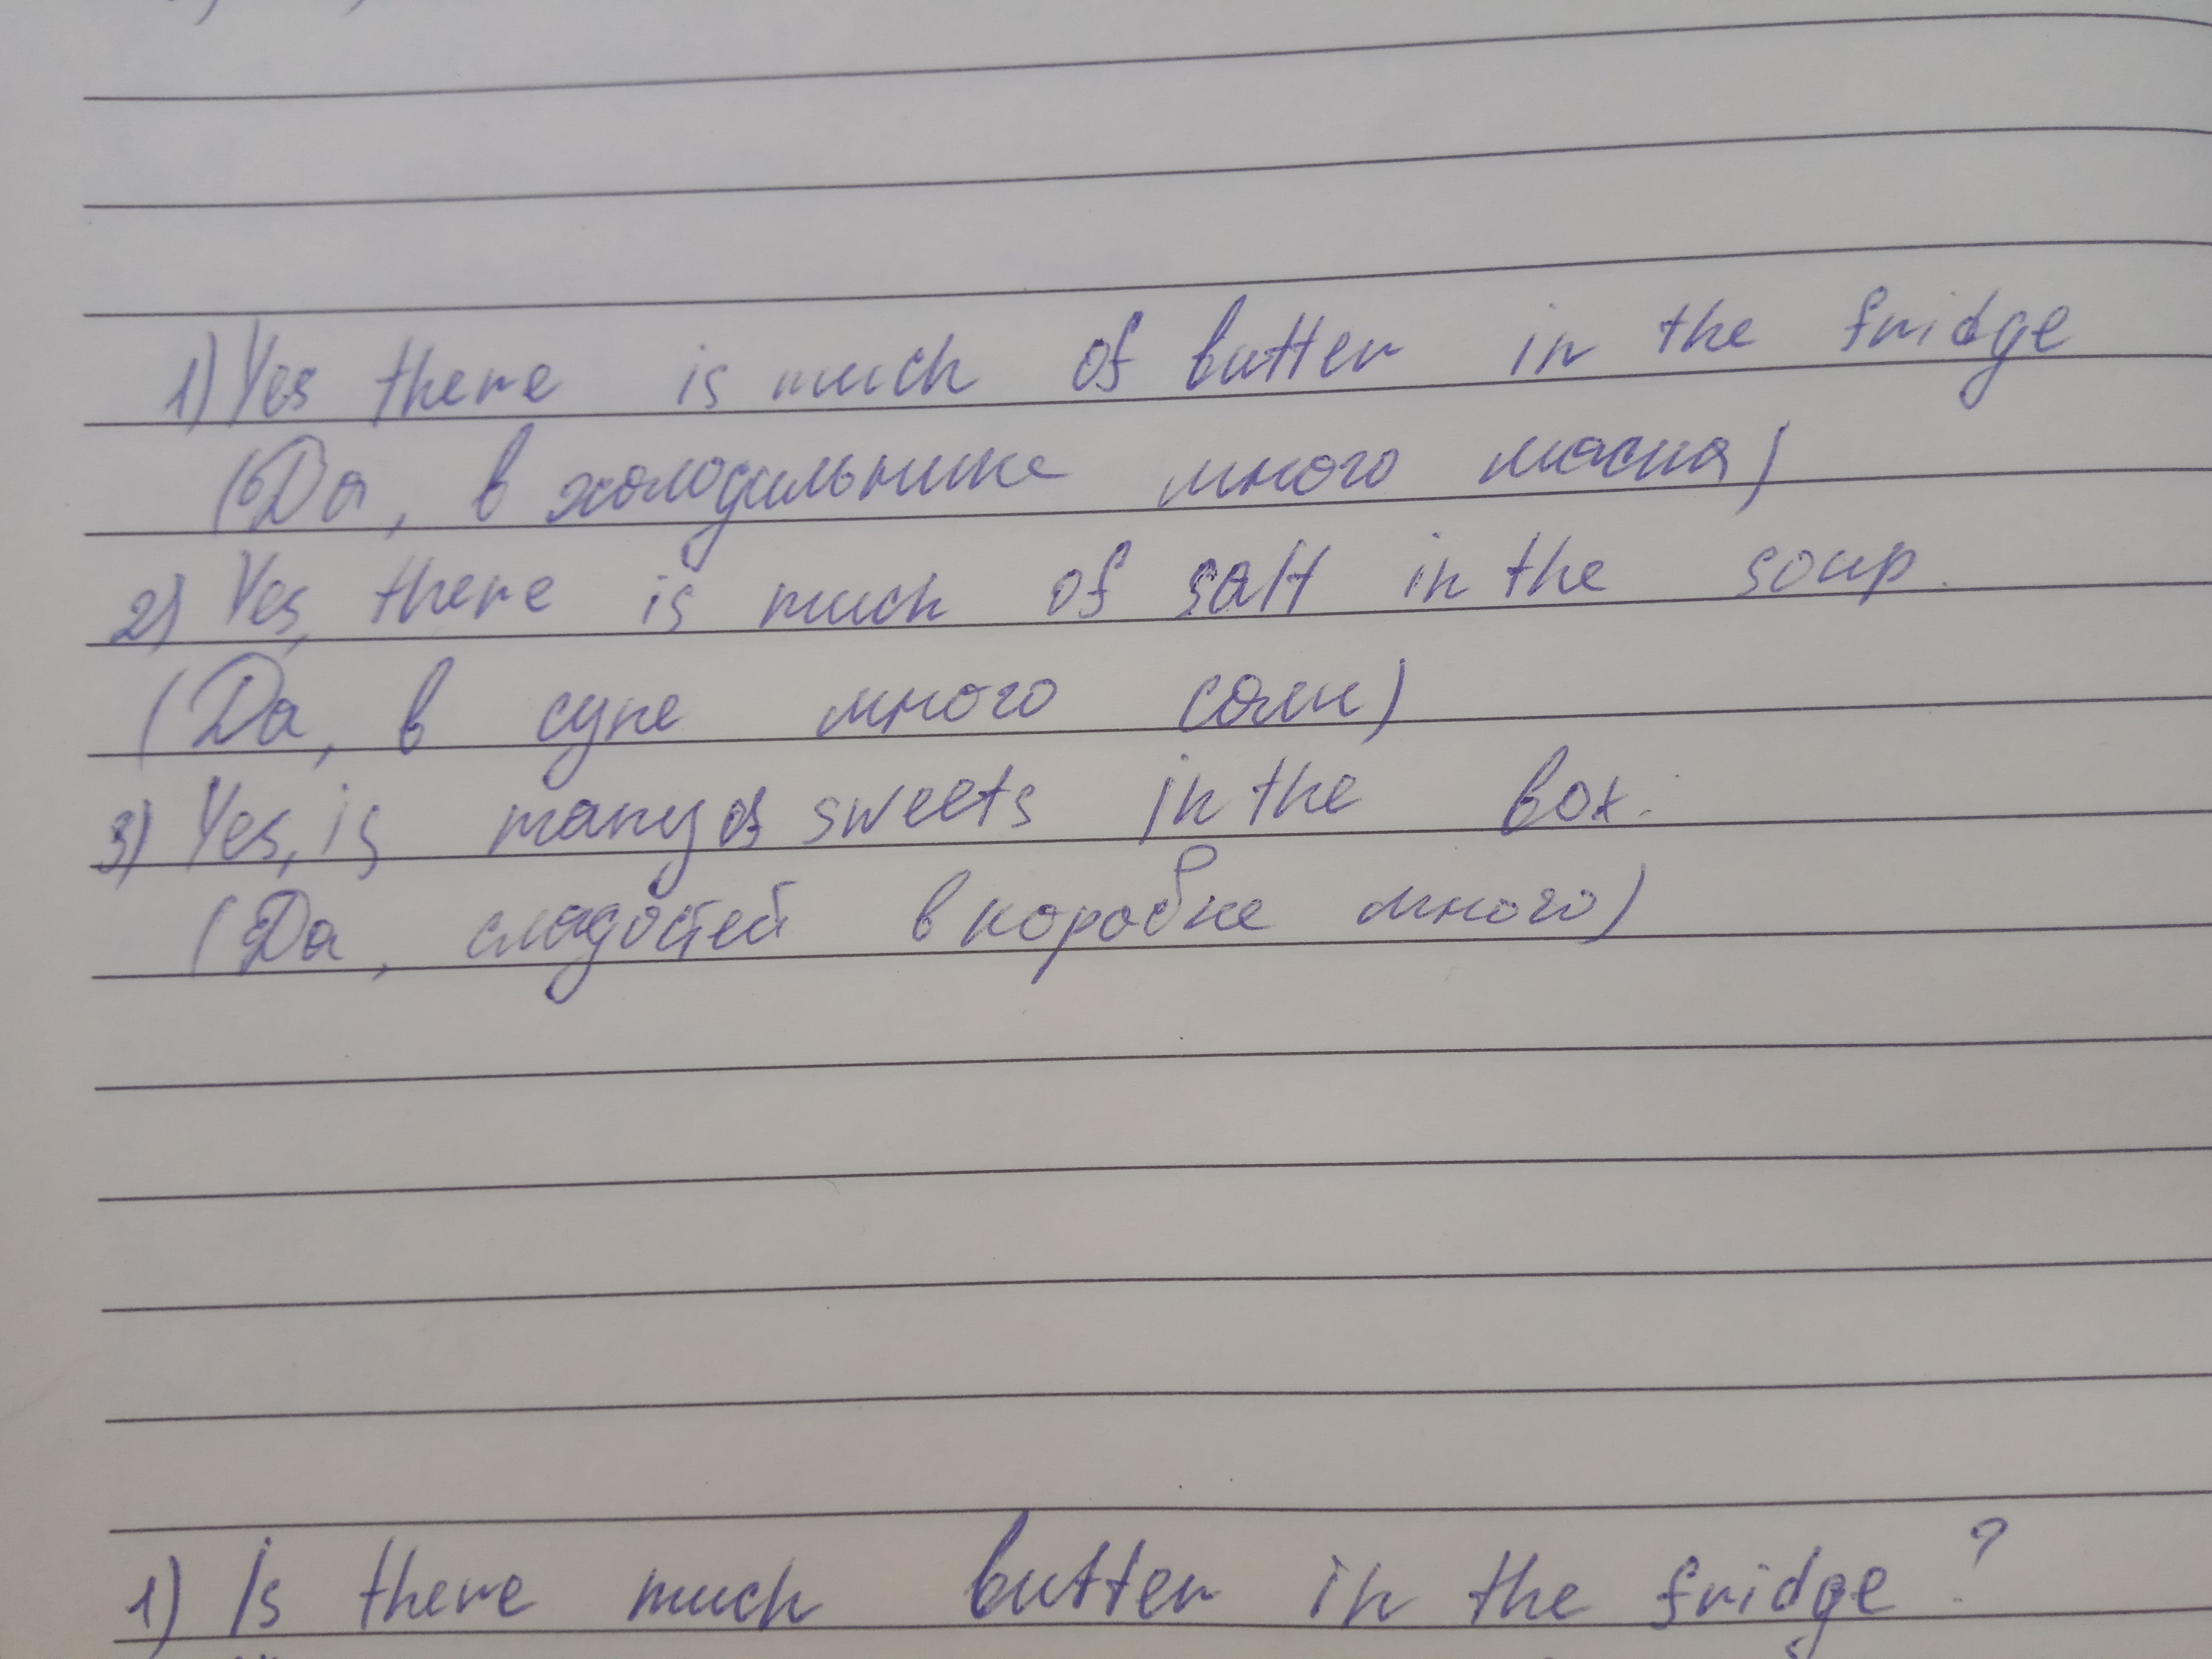 1) Yes there is much of butter in the fridge
(Да, в холодильнике много масла)
2) Yes, there is much of salt in the soup.
(Да, в супе много соли)
3) Yes, is many of sweets in the box.
(Да, сладостей в коробке много)
1) Is there much butter in the fridge?